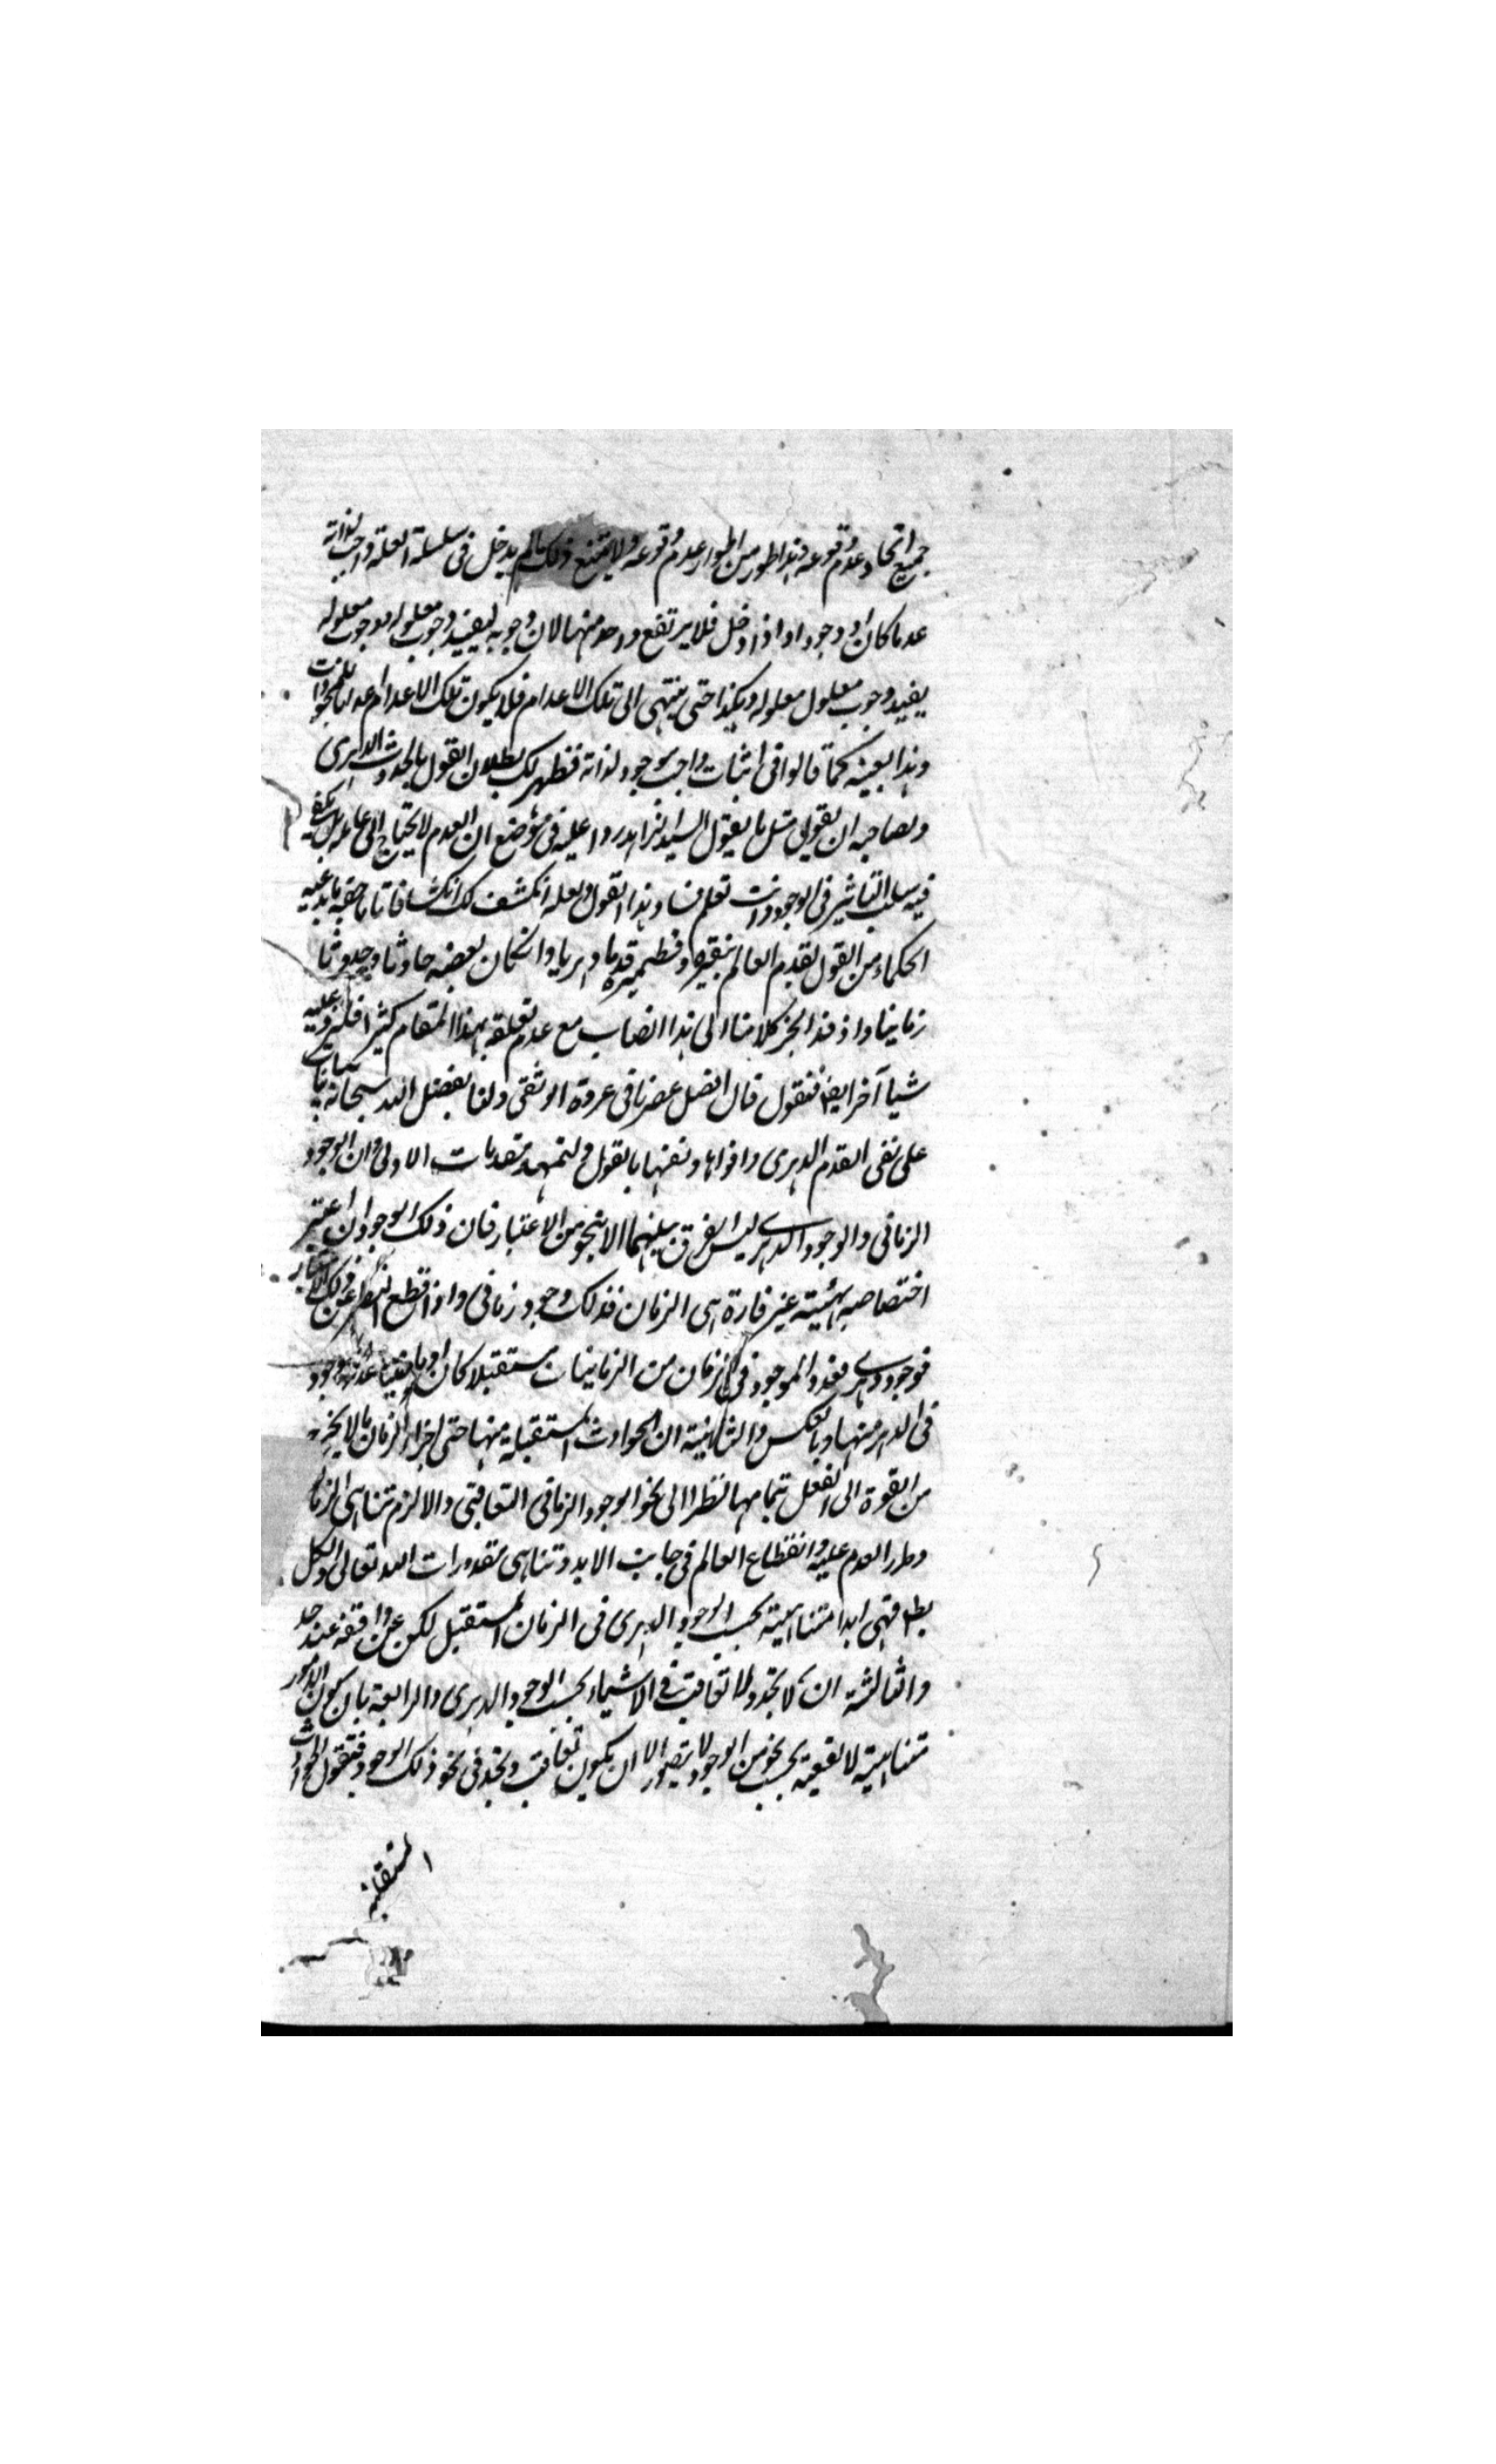 جميع انحاء عدم وقوعه وهذا طور من اطوار عدم وقوعه ولا يمتنع ذلك مالم يدخل فى سلسلة العلة واجب لذاته
عدما كان او وجودا واذا دخل فلا يرتفع واحد منها لان وجوبه يفيد وجوب معلوله ووجوب معلوله
يفيد وجوب معلول معلوله وهكذا حتى ينتهى الى تلك الاعدام فلا يكون تلك الاعدام عداما للموجودات
وهذا بعينه كما قالوا فى اثبات واجب الوجود لذاته فظهر لك بطلان القول بالحدوث الدهرى
ولصاحبه ان يقول مثل ما يقول السيد الزاهد ردا عليه فى موضع ان العدم لا يحتاج الى علة بل يكفى
فيه سلب التاثير فى الوجود وانت تعلم فساد هذا القول ولعله انكشف لك انكشافا تاما حقية ما يدعيه
الحكماء من القول بقدم العالم بنقيره وقطميره قدما دهريا وان كان بعضه حادثا وحدوثا
زمانيا واذ قد انجر كلامنا الى هذا النصاب مع عدم تعلقه بهذا المقام كثيرا فلنزد عليه
شيئا آخر ايضا فنقول قال افضل عصرنا فى عروة الوثقى ولنا بفضل الله سبحانه بيانات
على نفى القدم الدهرى وافواها وتفنها بالقول ولتمهد مقدمات الاولى ان الوجود
الزمانى والوجود الدهرى ليس الفرق بينهما الا بنحو من الاعتبار فان ذلك الوجود ان اعتبر
اختصاصه بهيئة غير قارة هى الزمان فذلك وجود زمانى واذا قطع النظر عن ذلك الاعتبار
فوجود دهرى فعدد الموجود فى كل زمان من الزمانيات مستقبلا كان او ماضيا عدته وجود
فى الدهر منها وبالعكس والثانية ان الحوادث المستقبلة منها حتى اجزاء الزمان مالا يخرج
من القوة الى الفعل بتمامها نظرا الى نحو الوجود الزمانى التعاقبى والا لزم تناهى الزمان
وطرء العدم عليه وانقطاع العالم فى جانب الابد وتناهى مقدورات الله تعالى والكل
بط فهى ابدا متناهية بحسب الوجود الدهرى فى الزمان المستقبل لكن غير واقفة عند حد
والثالثة ان لا تجدد ولا تعاقب فى الاشياء بحسب الوجود الدهرى والرابعة بان يكون الامور
متناهية لا تقفية بحسب نحو من الوجود لا يتصور الا ان يكون تعاقب وتجدد فى نحو ذلك الوجود فنقول الحوادث
المستقبلة